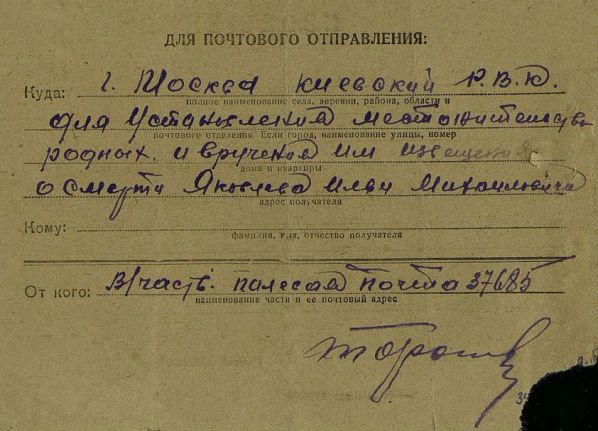 ДЛЯ ПОЧТОВОГО ОТПРАВЛЕНИЯ:
Куда: г. Москва Киевский Р.В.К.
полное наименование села, деревни, района, области и
для Установления местожительства
почтового отделения. Если город, наименование улицы, номер
родных и вручения им извещения
дома и квартиры
о смерти Яковлева Ильи Михайловича
адрес получателя
Кому:
фамилия, имя, отчество получателя
От кого: В/часть полевая почта 37685
наименование части и ее почтовый адрес